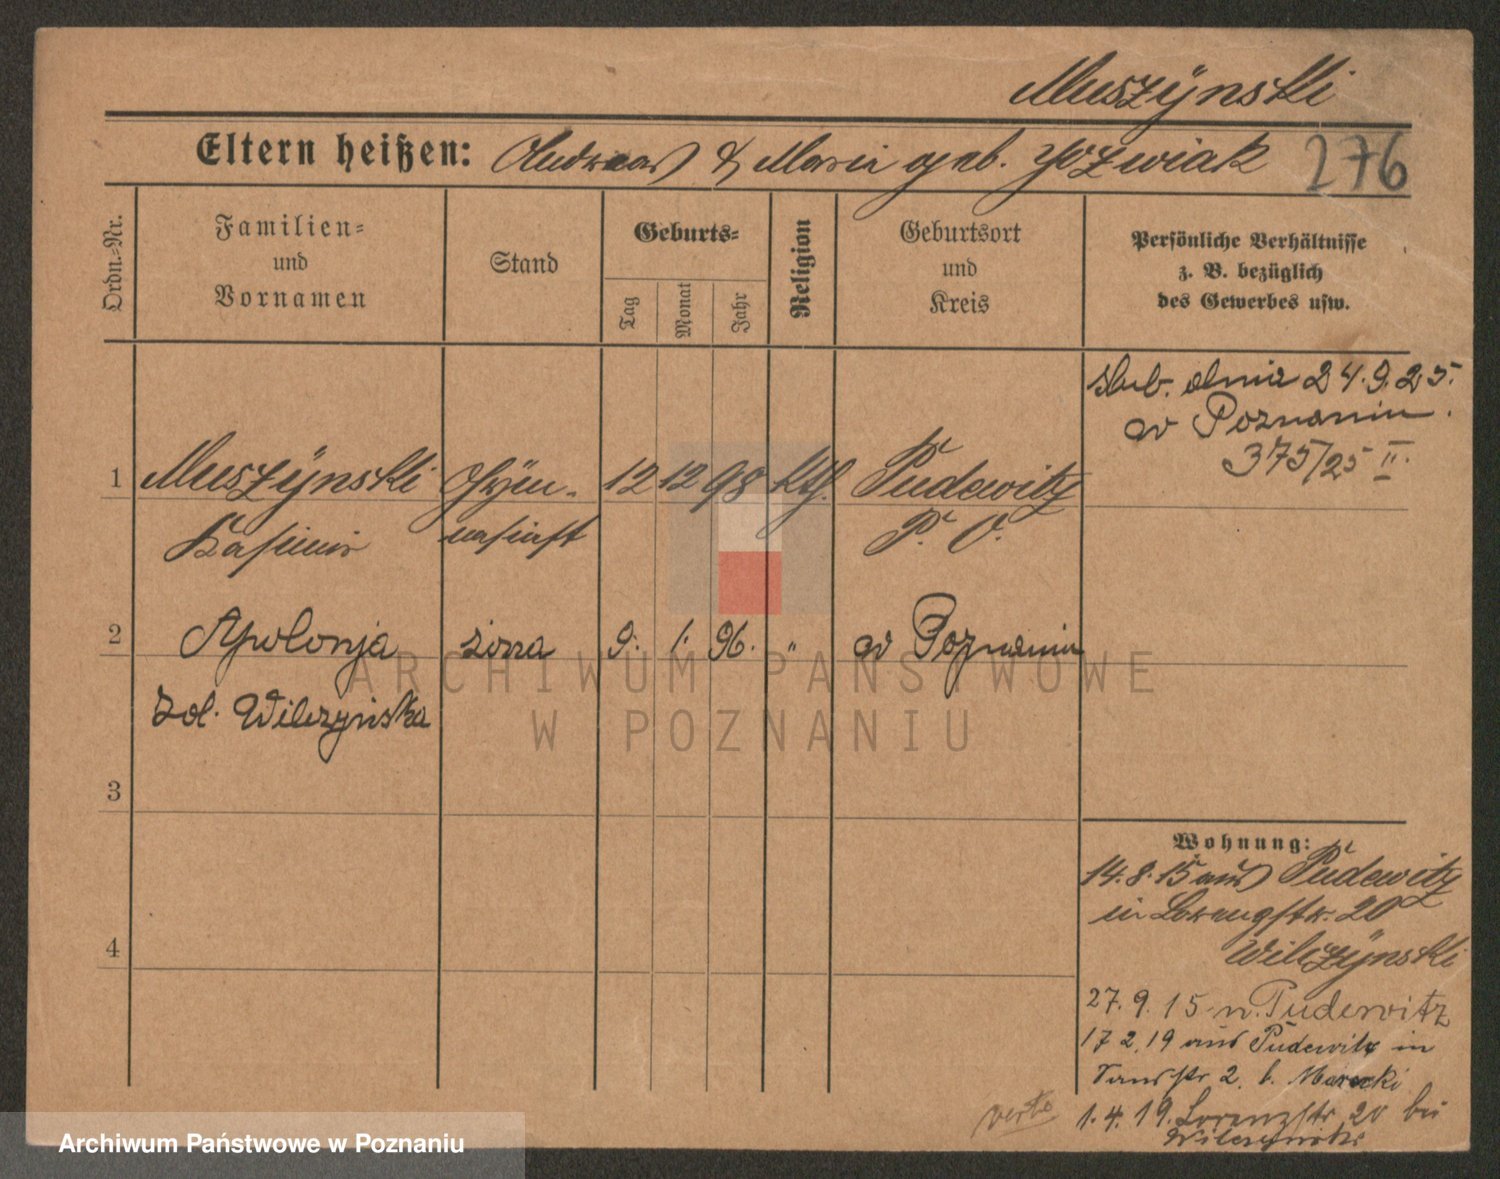 Muszÿnski
Eltern heißen: Andreas & Maria geb. Jozwiak 276
Ordn.=Nr.
Familien=
und
Vornamen
Stand
Geburts=
Tag
Monat
Jahr
Religion
Geburtsort
und
Kreis
Persönliche Verhältnisse
z. B. bezüglich
des Gewerbes usw.
ślub. dnia 24.9.25.
w Poznaniu.
375/25 II.
1 Muszÿnski Gÿm- 12 12 98 kth. Pudewitz
Kasimir nasiast P. O.
2 Apolonja żona 9. 1. 96. " w Poznaniu
zd. Wilczyńska
3
4
Wohnung:
14.8.15 aus Pudewitz
in Lorenzstr. 20
Wilczÿnski
27.9.15 n. Pudewitz
17 2.19 aus Pudewitz in
2. b. Marecki
1.4.19. Lorenzstr 20 bei
Wilczynski
verte
ARCHIWUM PAŃSTWOWE
W POZNANIU
Archiwum Państwowe w Poznaniu